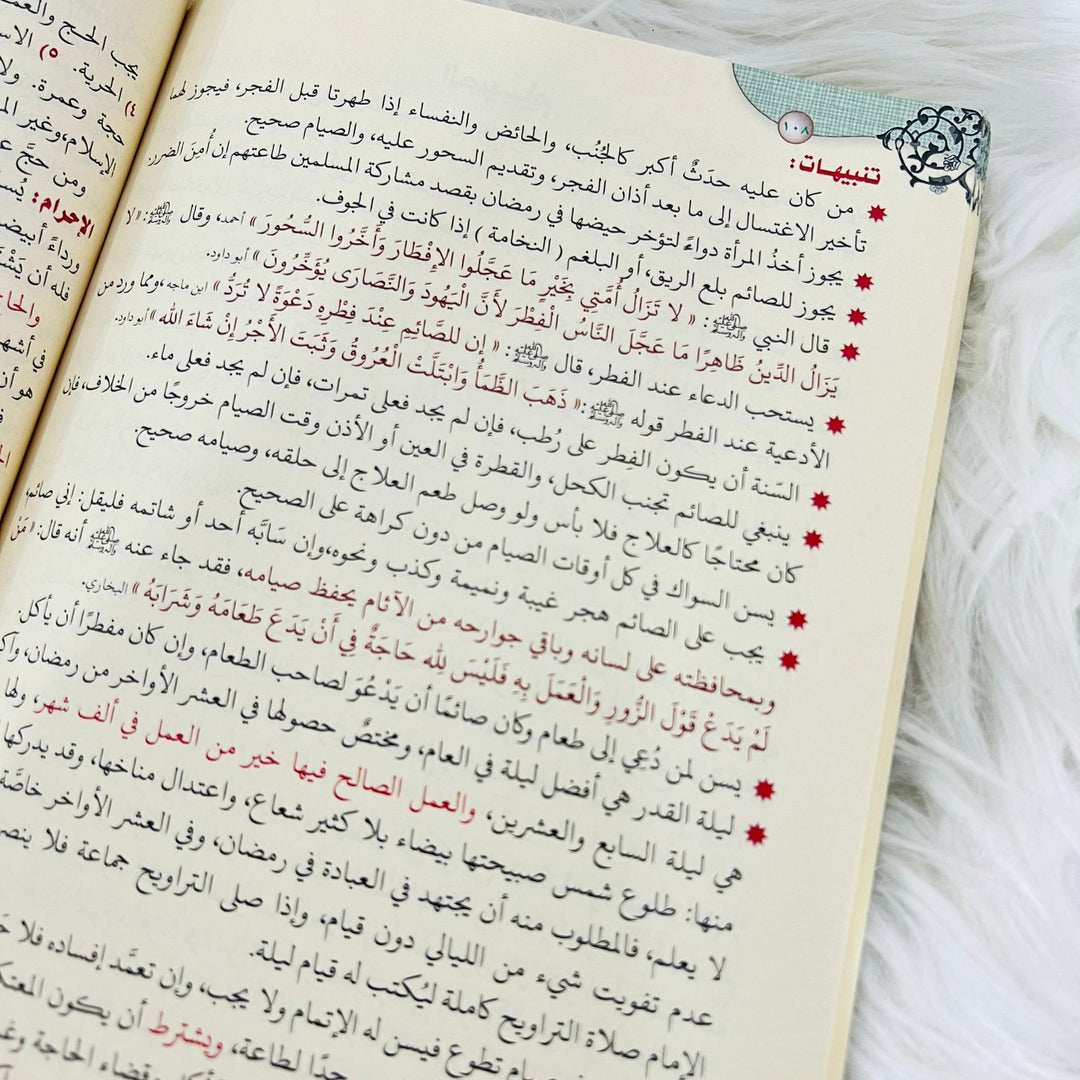 ١٠٨
تنبيهات:
من كان عليه حدَثٌ أكبر كالجُنُب، والحائض والنفساء إذا طهرتا قبل الفجر، فيجوز لهما
تأخير الاغتسال إلى ما بعد أذان الفجر، وتقديم السحور عليه، والصيام صحيح.
يجوز أخذُ المرأة دواءً لتؤخر حيضها في رمضان بقصد مشاركة المسلمين طاعتهم إن أُمِنَ الضرر.
يجوز للصائم بلع الريق، أو البلغم ( النخامة ) إذا كانت في الجوف.
قال النبي ﷺ: « لا تَزَالُ أُمَّتِي بِخَيْرٍ مَا عَجَّلُوا الإِفْطَارَ وَأَخَّرُوا السُّحُورَ » أحمد، وقال ﷺ: « لا
يَزَالُ الدِّينُ ظَاهِرًا مَا عَجَّلَ النَّاسُ الْفِطْرَ لأَنَّ الْيَهُودَ وَالنَّصَارَى يُؤَخِّرُونَ » أبو داود.
يستحب الدعاء عند الفطر، قال ﷺ: « إن للصَّائِمِ عِنْدَ فِطْرِهِ دَعْوَةً لا تُرَدُّ » ابن ماجه، ومما ورد من
الأدعية عند الفطر قوله ﷺ: « ذَهَبَ الظَّمَأُ وَابْتَلَّتْ الْعُرُوقُ وَثَبَتَ الأَجْرُ إِنْ شَاءَ الله » أبو داود.
السّنة أن يكون الفِطر على رُطب، فإن لم يجد فعلى تمرات، فإن لم يجد فعلى ماء.
ينبغي للصائم تجنب الكحل، والقطرة في العين أو الأذن وقت الصيام خروجًا من الخلاف، فإن
كان محتاجًا كالعلاج فلا بأس ولو وصل طعم العلاج إلى حلقه، وصيامه صحيح.
يسن السواك في كل أوقات الصيام من دون كراهة على الصحيح.
يجب على الصائم هجر غيبة ونميمة وكذب ونحوه، وإن سَابَّه أحد أو شاتمه فليقل: إني صائم،
وبمحافظته على لسانه وباقي جوارحه من الآثام يحفظ صيامه، فقد جاء عنه ﷺ أنه قال: « مَنْ
لَمْ يَدَعْ قَوْلَ الزُّورِ وَالْعَمَلَ بِهِ فَلَيْسَ لله حَاجَةٌ فِي أَنْ يَدَعَ طَعَامَهُ وَشَرَابَهُ » البخاري.
يسن لمن دُعِي إلى طعام وكان صائمًا أن يَدْعُوَ لصاحب الطعام، وإن كان مفطرًا أن يأكل.
ليلة القدر هي أفضل ليلة في العام، ومختصٌ حصولها في العشر الأواخر من رمضان،
هي ليلة السابع والعشرين، والعمل الصالح فيها خير من العمل في ألف شهر، ولها
منها: طلوع شمس صبيحتها بيضاء بلا كثير شعاع، واعتدال مناخها، وقد يدركها
لا يعلم، فالمطلوب منه أن يجتهد في العبادة في رمضان، وفي العشر الأواخر خاصَّة
عدم تفويت شيء من الليالي دون قيام، وإذا صلى التراويح جماعة فلا
الإمام صلاة التراويح كاملة ليُكتب له قيام ليلة.
تطوع فيسن له الإتمام ولا يجب، وإن تعمَّد إفساده فلا
لطاعة، ويشترط أن يكون
وقضاء الحاجة
يجب الحج
٤) الحرية. ٥)
حجة وعمرة. ولا
الإسلام، وغير
ومن حجَّ
الإحرام:
ورداءً
فله أن
في
هو أن